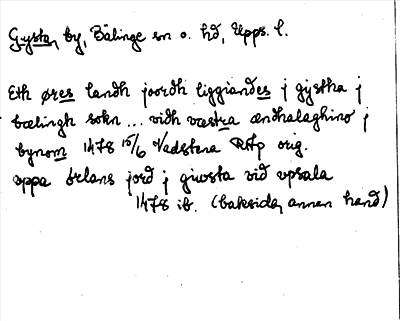 Gysta, by, Bälinge sn o. hd, Upps. l.
Eth øres landh jordh liggiandes j gystha j
bælingh sokn ... vidh væstra ændhalaghino j
bynom 1478 15/6 Vadstena RAp orig.
uppa ørlans jord j giwsta vid vpsala
1478 ib. (baksida, annan hand)